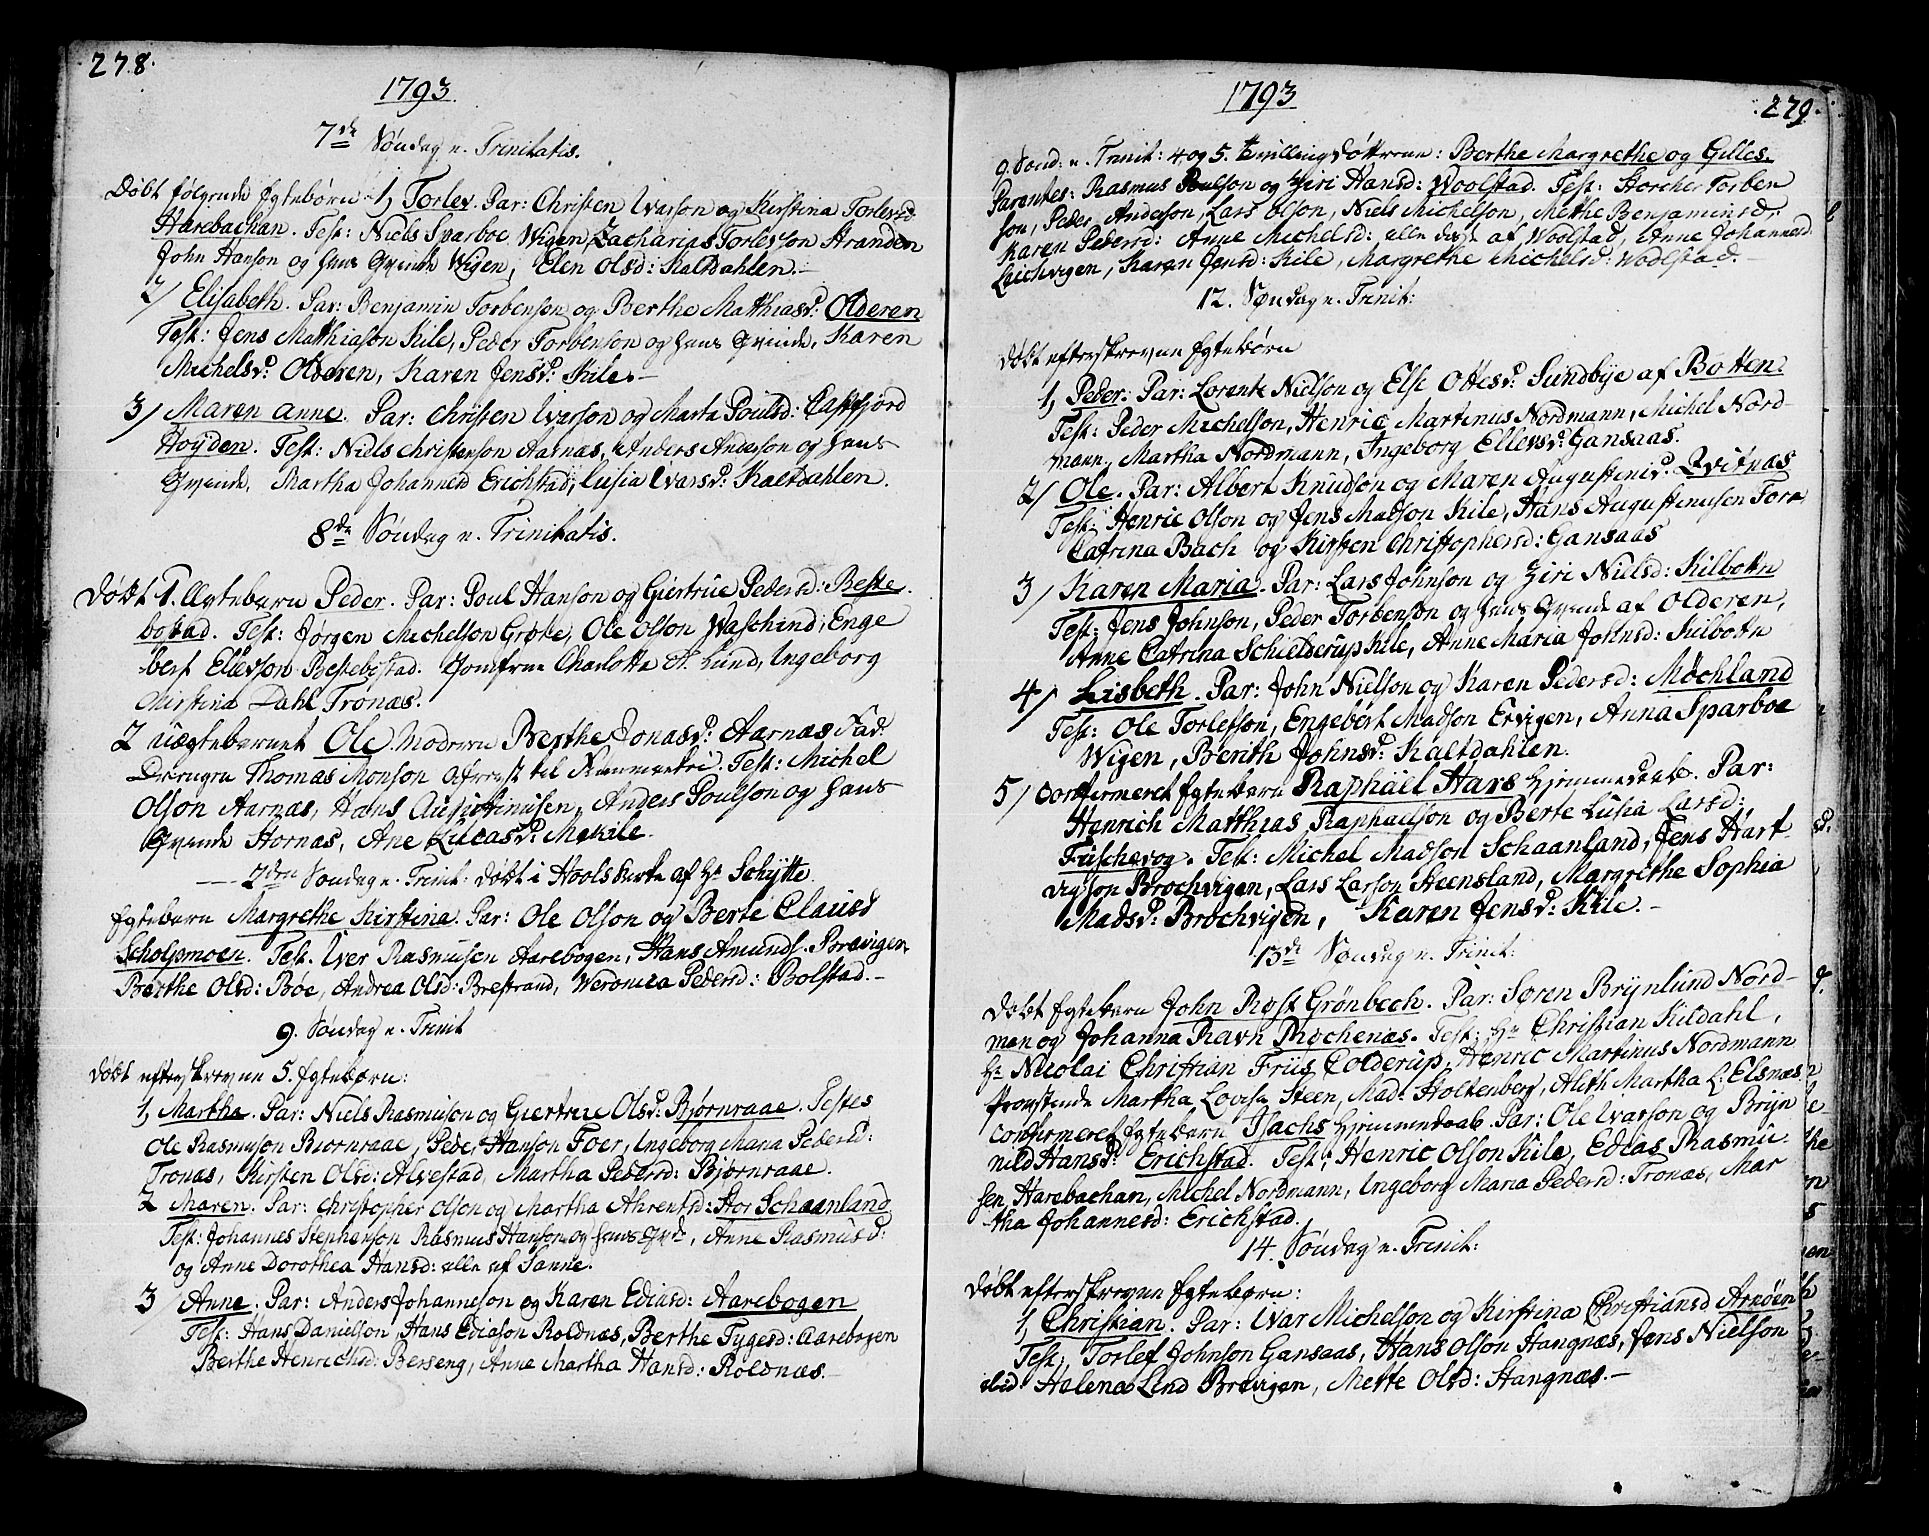 278.
1793.
7de Søndag n. Trinitatis.
Døbt følgende Egtebørn 1, Torlev. Par: Christen Ivarson og Kirstina Torlevsd
Harebachan. Test: Niels Sparboe Wigen, Zacharias Torlefson Stranden
John Hanson og hans Qvinde Wigen, Elen Olsd: Kaltdahlen.-
2/ Elisabeth. Par: Benjamin Torbenson og Berthe Matthiasd: Olderen
Test: Jens Matthiason Kile, Peder Torbenson og hans Qvinde, Karen
Michelsd: Olderen, Karen Jensd: Kile.-
3/ Maren Anne. Par: Christen Ivarson og Marta Poulsd: Castfjord
Høyden. Test: Niels Christenson Aarnæs, Anders Anderson og hans
Qvinde, Martha Johannesd Erichstad, Lusia Ivarsd: Kaltdahlen.
8de Søndag n. Trinitatis.
Døbt 1. Ægtebarn Peder. Par: Poul Hanson og Giertrue Pedersd: Beste-
bostad. Test: Jørgen Michelson Grøte, Ole Olson Waschind, Enge
bert Ellevson Bestebostad. Jomfrue Charlotte A. Lund, Ingeborg
Kirstina Dahl Tronæs.
2 uægtebarnet Ole Moderen Berthe Jonasd: Aarnæs Fad:
Drengen Thomas Monson Test: Michel
Olson Aarnæs, Hans Augustinusen, Anders Poulson og hans
Qvinde Hornæs, Ane Lucasd: Mekile.
7den Søndag n. Trinit: døbt i Hvols Kirke af Hr Schytte
Egtebarn Margrethe Kirstina. Par: Ole Olson og Berte Clausd
Scholpmoen. Test. Iver Rasmusen Aarebogen, Hans Amunds. Brevigen
Berthe Olsd: Bøe, Andrea Olsd: Brestrand, Veronica Pedersd: Bolstad.-
9. Søndag n. Trinit
døbt efterskrevne 5. Egtebørn:
1, Martha. Par: Niels Rasmuson og Giertrue Olsd. Bjørnraae. Testes
Ole Rasmuson Biornraae, Peder Hanson Foer, Ingeborg Maria Pedersd:
Tronæs, Kirsten Olsd: Alvestad, Martha Pedersd: Bjørnraae.
2 Maren. Par: Christopher Olson og Martha Ahrentsd: Stor Schaanland
Test: Johannes Stephenson Rasmus Hanson og hans Qvde, Anne Rasmusd:
og Anne Dorothea Hansd: alle af Sanne.
3/ Anne. Par: Anders Johanneson og Karen Ediasd: Aarebogen
Test: Hans Danielson, Hans Ediason Roldnæs, Berthe Tygesd: Aarebogen
Berthe Henrichsd: Berseng, Anne Martha Hansd: Roldnæs.-
1793
279.
9 Sønd: n. Trinit: 4 og 5. Tvillingdøttrene: Berthe Margrethe og Gilles.
Parentes: Rasmus Poulson og Ziri Hansd: Woolstad. Test: Storcher Torben
son, Peder Anderson, Lars Olson, Niels Michelson, Methe Benjaminsd,
Karen Pedersd: Anne Michelsd: alle disse af Woolstad, Anne Johannesd
Leichvigen, Karen Jensd: Kile, Margrethe Michelsd: Woolstad.-
12. Søndag n. Trinit:
døbt efterskrevne Egtebørn
1, Peder. Par: Lorentz Nielson og Else Ottesd: Sundbye af Botten:
Test: Peder Michelson, Henric Martinus Nordmann, Michel Nord-
mann, Martha Nordmann, Ingeborg Ellevsd: Gansaas.
2/ Ole. Par: Albert Knudson og Maren Augustinisd. Qvitnæs
Test: Henric Olson og Jens Madson Kile, Hans Augustinusen Foer
Catrina Bach og Kirsten Christophersd: Gansaas
3/ Karen Maria. Par: Lars Johnson og Ziri Nielsd: Kilbotn
Test: Jens Johnson, Peder Torbenson og hans Qvinde af Olderen,
Anne Catrina Schielderup Kile, Anne Maria Johnsd: Kilbotn
4/ Lisbeth. Par: John Nielson og Karen Pedersd: Møchland
Test: Ole Torlefson, Engebert Madson Ervigen, Anna Sparboe
Wigen, Berith Johnsd: Kaltdahlen.
5/ Confirmeret Egtebarn Raphäel Hars Hjemmedaab. Par:
Henrich Matthias Raphaelson og Berte Lusia Larsd:
Fuschevog. Test: Michel Madson Schaanland, Jens Hart
vigson Brochvigen, Lars Larson Steensland, Margrethe Sophia
Madsd: Brochvigen, Karen Jensd: Kile.-
13de Søndag n. Trinit:
døbt Egtebarn John Rost Grønbech. Par: Søren Brynlund Nord-
man og Johanna Ravn Røchenæs. Test: Hr Christian Kildahl,
Hr Nicolai Christian Friis Colderup, Henric Martinus Nordmann
Provstinde Martha Lovisa Steen, Mad: Holtenberg, Alith Martha L. Elsnæs
Confirmeret Egtebarn Isachs Hjemmedaab. Par: Ole Ivarson og Bryn
nild Hansd: Erichstad. Test: Henric Olson Kile, Edias Rasmu-
sen Harebachan, Michel Nordmann, Ingeborg Maria Pedersd: Tronæs, Mar
tha Johannesd: Erichstad.
14. Søndag n. Trinit:
Døbt efterskrevne Egtebørn:
1, Christian. Par: Ivar Michelson og Kirstina Christiansd Arnøen
Test, Torlef Johnson Gansaas, Hans Olson Hangnæs, Jens Nielson
ibid. Helena Lind Brevigen, Mette Olsd: Stangnæs.-